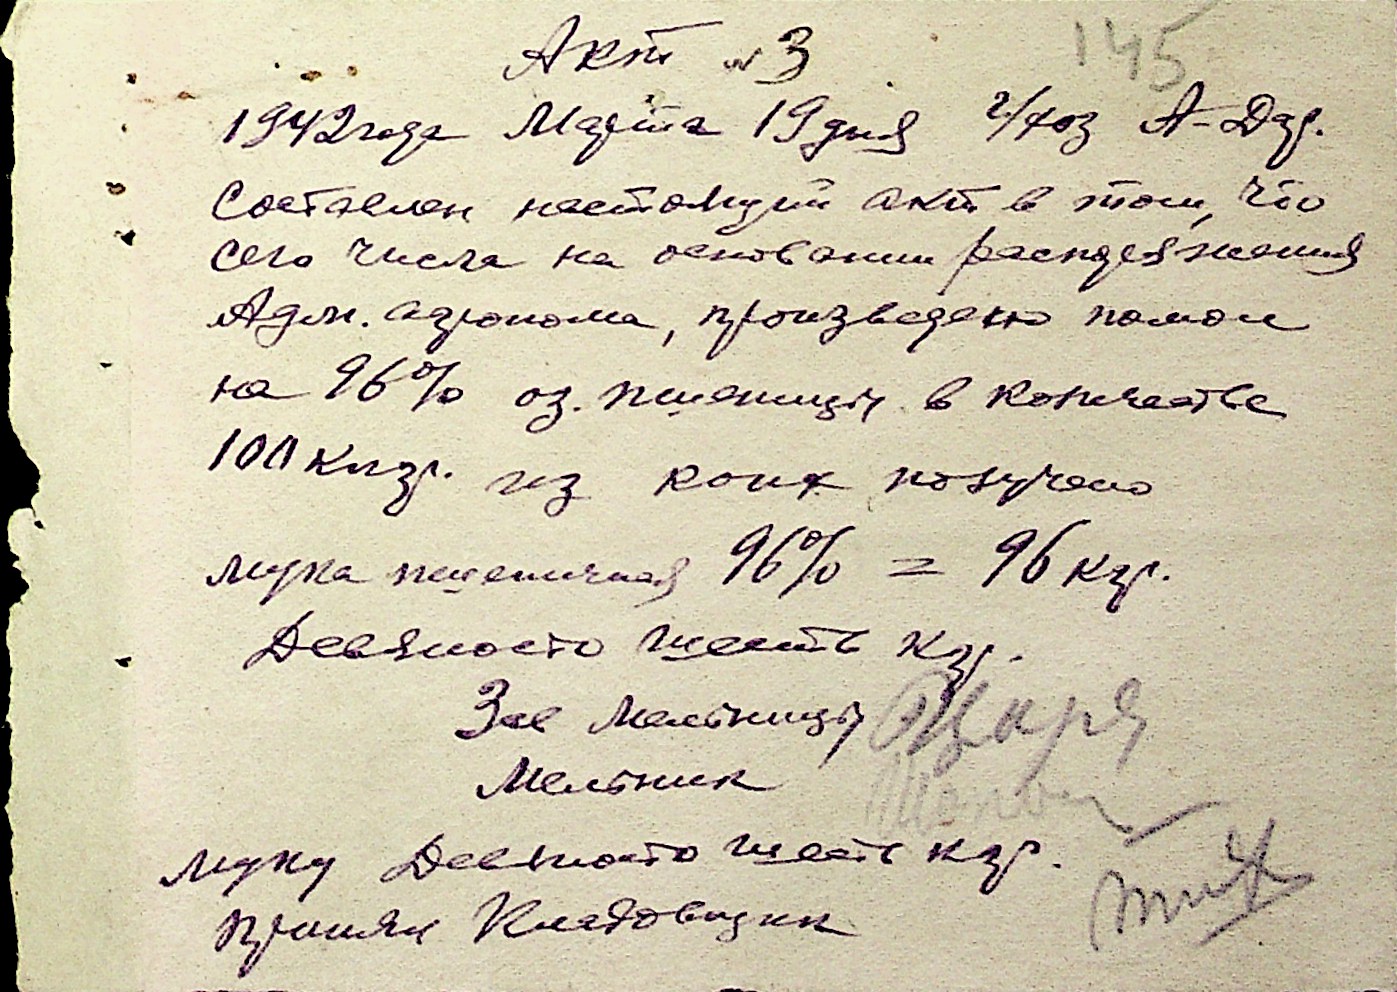 145
Акт № 3
1942 года Марта 19 дня г/хоз А-Дар.
Составлен настоящий акт в том, что
сего числа на основании распоряжения
Адм. агронома, произведено помол
на 96% оз. пшеницы в количестве
100 клгр. из коих получено
мука пшеничная 96% = 96 кгр.
Девяносто шесть кгр.
Зав мельницы
Мельник
муку Девяносто шесть кгр.
принял Кладовщик